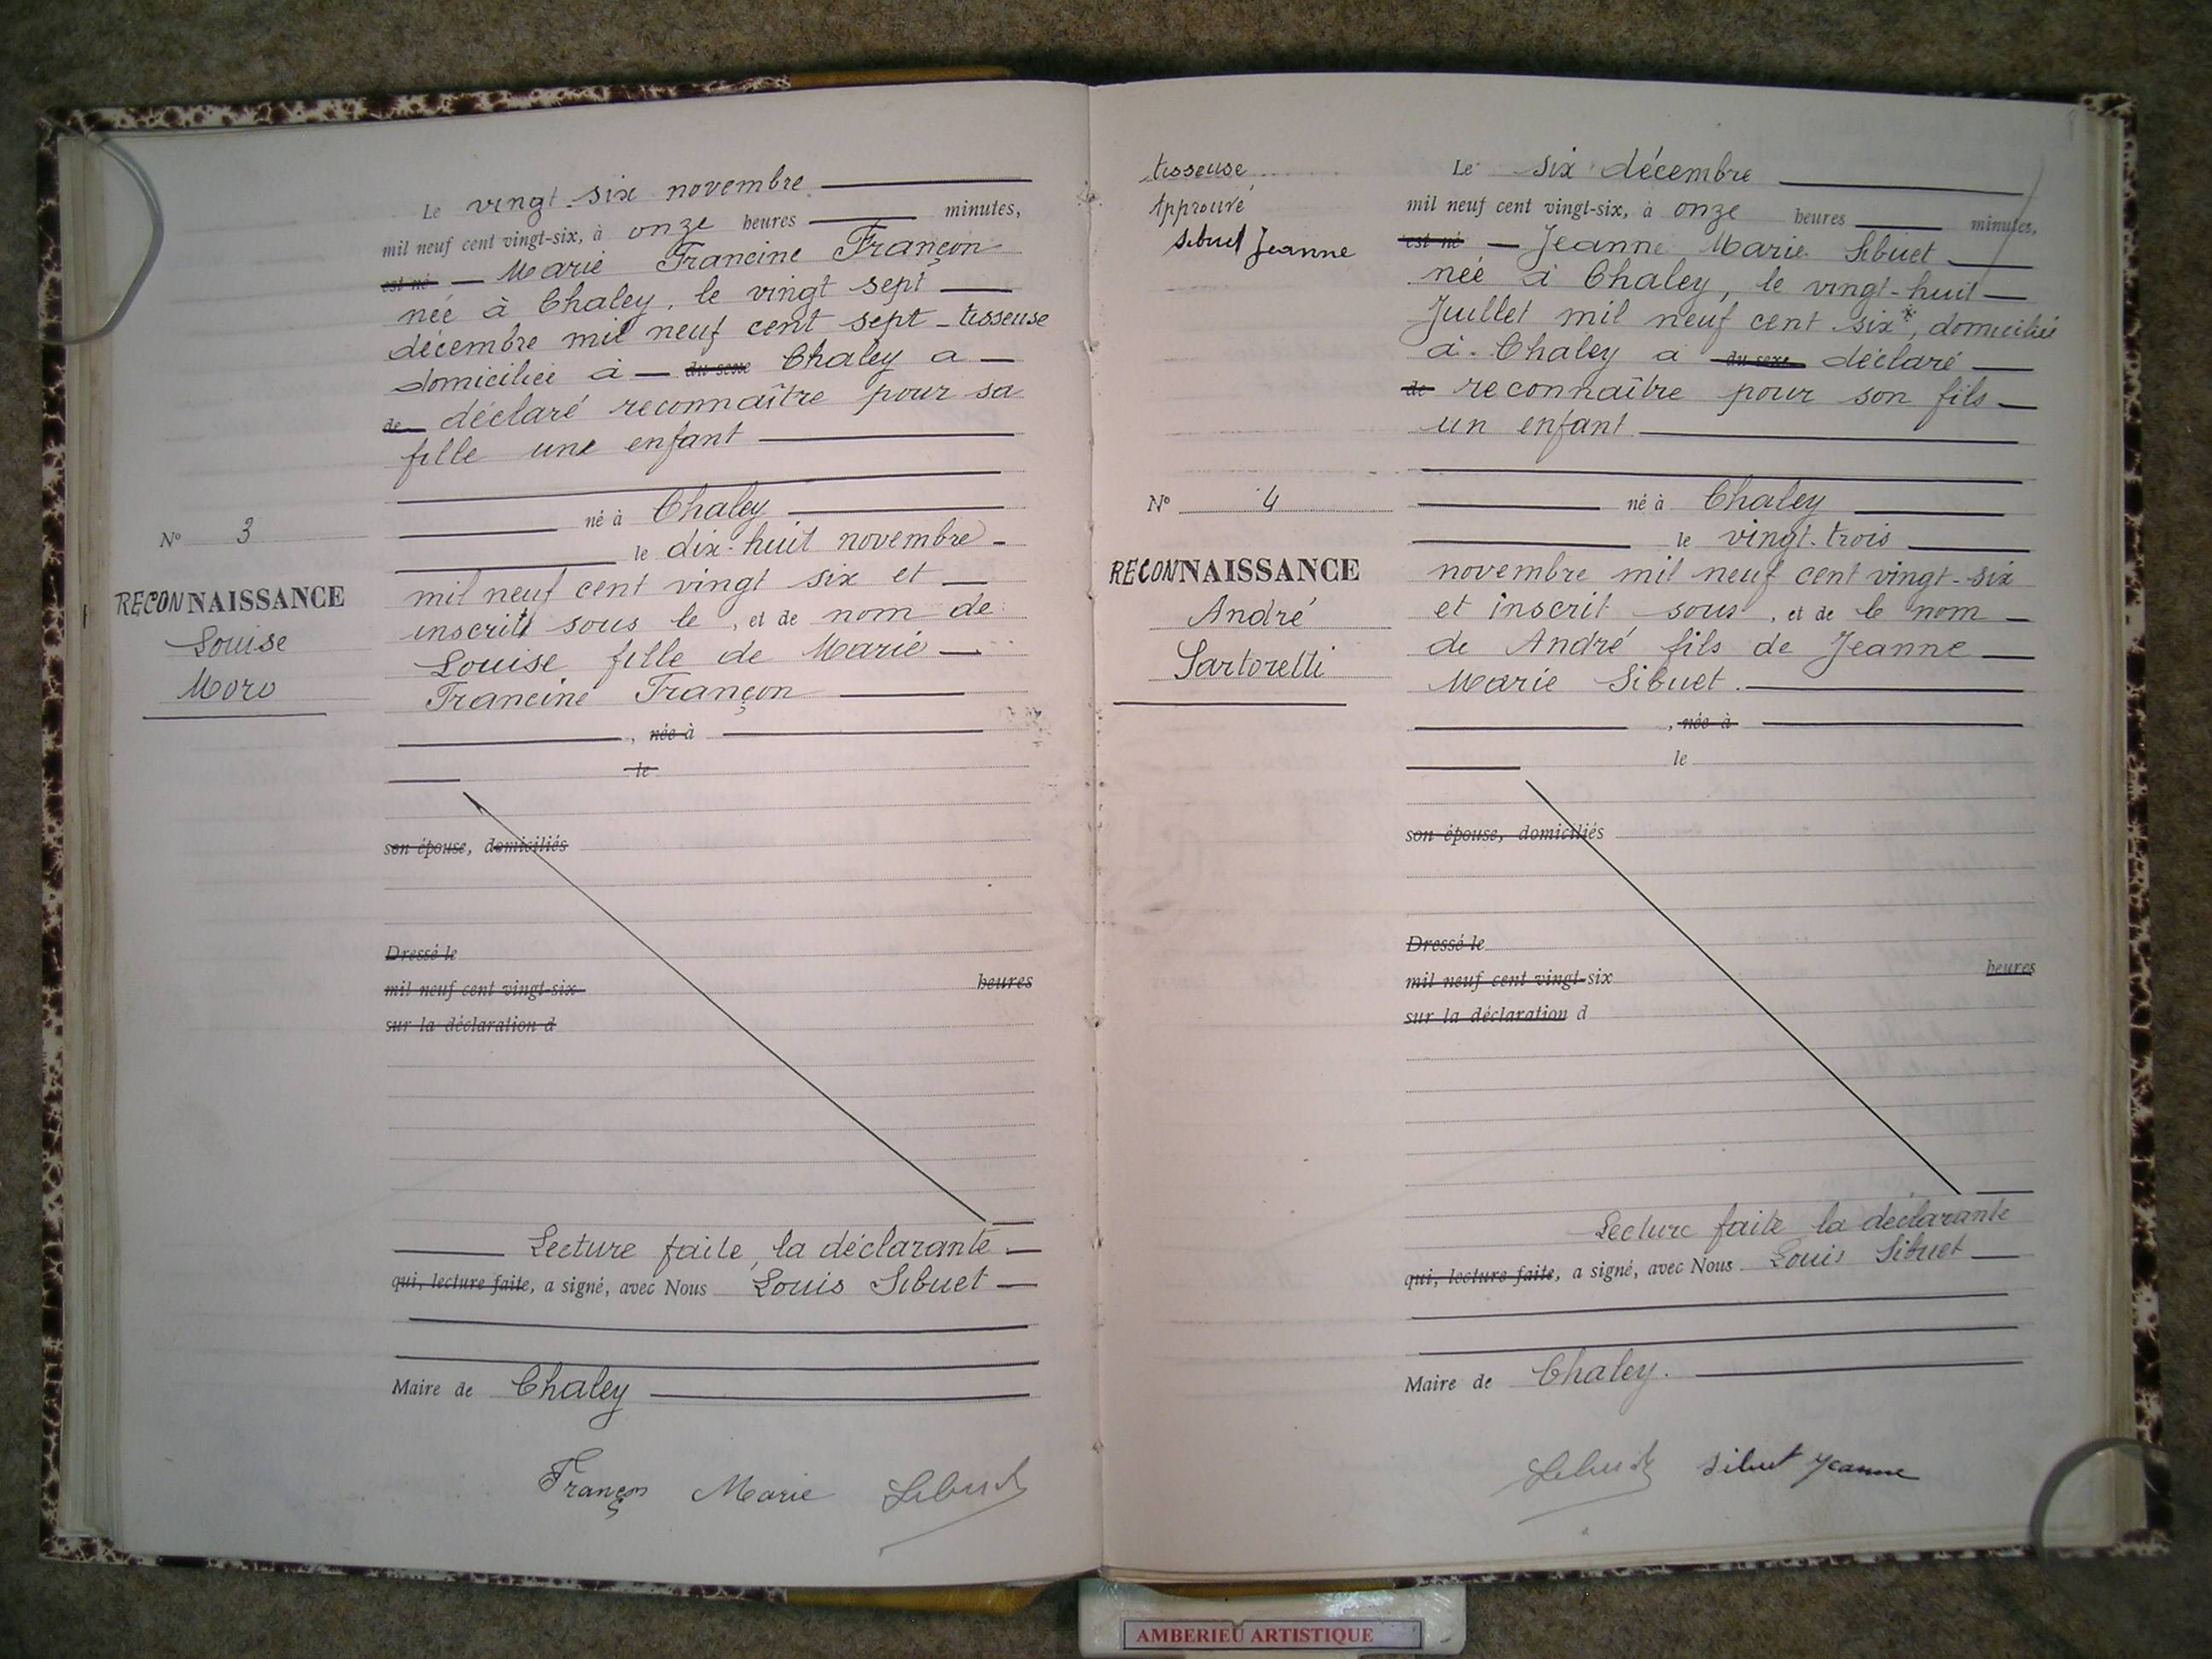 Le vingt-six novembre
mil neuf cent vingt-six, à onze heures minutes,
est né Marie Francine Françon
née à Chaley, le vingt sept
décembre mil neuf cent sept - tisseuse
domiciliée à du sexe Chaley a
de déclaré reconnaître pour sa
fille une enfant
né à Chaley
le dix-huit novembre
mil neuf cent vingt six et
inscrite sous le , et de nom de
Louise fille de Marie
Francine Françon
, née à
le
son épouse, domiciliés
Dressé le
mil neuf cent vingt-six heures
sur la déclaration d
Lecture faite, la déclarante
qui, lecture faite, a signé, avec Nous Louis Sibuet
Maire de Chaley
Françon Marie Sibuet
N° 3
RECONNAISSANCE
Louise
Moro
tisseuse
Approuvé
Sibuet Jeanne
N° 4
RECONNAISSANCE
André
Sartorelli
Le six décembre
mil neuf cent vingt-six, à onze heures minutes,
est né Jeanne Marie Sibuet
née à Chaley, le vingt-huit
Juillet mil neuf cent six*, domiciliée
à Chaley a du sexe déclaré
de reconnaître pour son fils
un enfant
né à Chaley
le vingt-trois
novembre mil neuf cent vingt-six
et inscrit sous , et de le nom
de André fils de Jeanne
Marie Sibuet.
, née à
le
son épouse, domiciliés
Dressé le
mil neuf cent vingt-six heures
sur la déclaration d
Lecture faite la déclarante
qui, lecture faite, a signé, avec Nous Louis Sibuet
Maire de Chaley.
Sibuet Sibuet Jeanne
AMBERIEU ARTISTIQUE